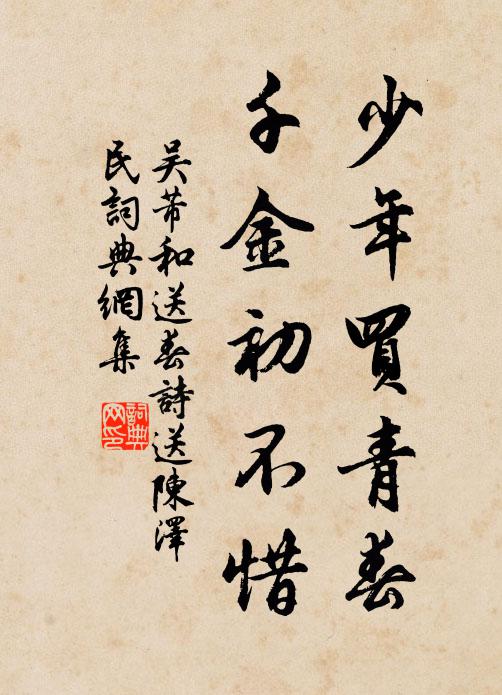 少年買青春
千金初不惜
吴芾和送春詩送陳澤
民詞典網集
詞典
网印